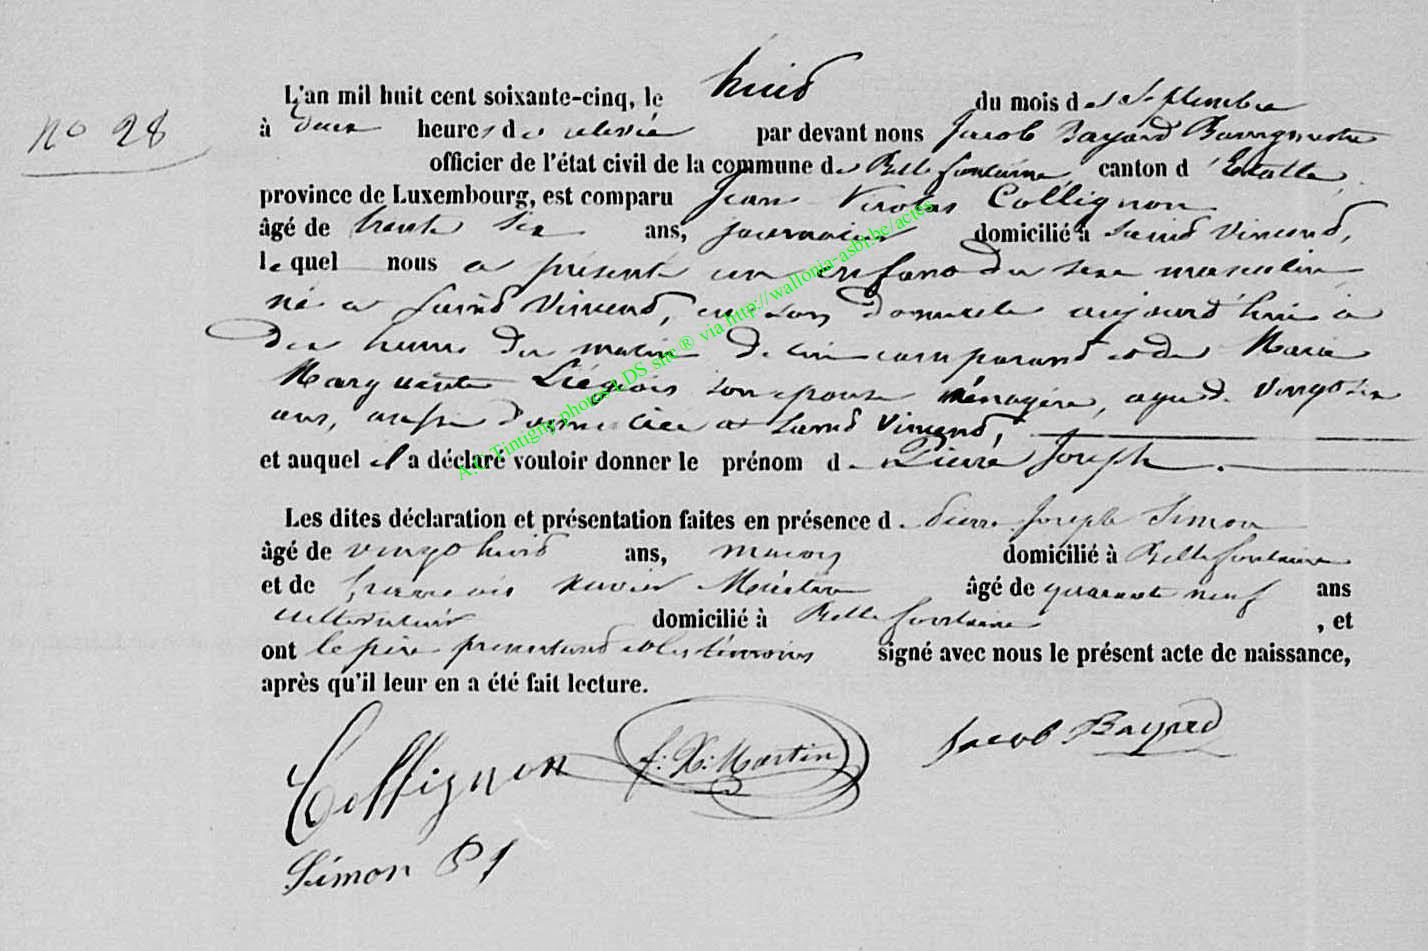 L'an mil huit cent soixante-cinq, le huid du mois de Septembre
no 28
à deux heures de relevée par devant nous Jacob Bayard Bourgmestre
officier de l'état civil de la commune de Bellefontaine canton d'Etalle,
province de Luxembourg, est comparu Jean Nicolas Collignon
âgé de trente six ans, journalier domicilié à Saind Vincend,
lequel nous a présenté un enfand du sexe masculin
né a Saind Vincend, en son domicile aujourd'hui à
dix heures du matin de lui comparand et de Marie
Marguerite Liégeois son epouse ménagère, agée de vingt six
ans, aussi domiciliée a Saind Vincend,
et auquel il a déclaré vouloir donner le prénom de Pierre Joseph.
Les dites déclaration et présentation faites en présence de Pierre Joseph Simon
âgé de vingt huid ans, macon domicilié à Bellefontaine
et de françois xavier Martin âgé de quarante neuf ans
cultivateur domicilié à Bellefontaine , et
ont le père presentand et les témoins signé avec nous le présent acte de naissance,
après qu'il leur en a été fait lecture.
Collignon f: X: Martin Jacob Bayard
Simon P J
A.G Tintigny photos LDS site ® via http://wallonia-asbl.be/actes